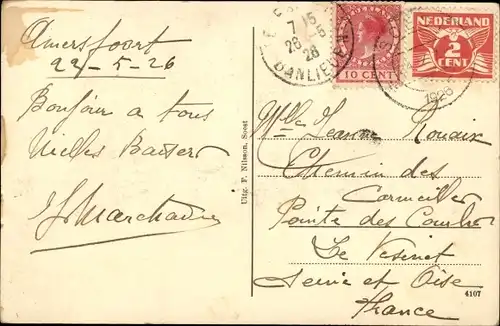 Amersfoort
22-5-26
Bonjour a tous
Baisers
Marchand
Uitg. F. Nilsson, Soest
7 15
26-5
26
BANLIEUE
NEDERLAND
10 CENT
NEDERLAND
2
CENT
1926
Mlle Jeanne Rouaix
Chemin des
Cormeilles
Pointe des Courlis
Le Vesinet
Seine et Oise
France
4107